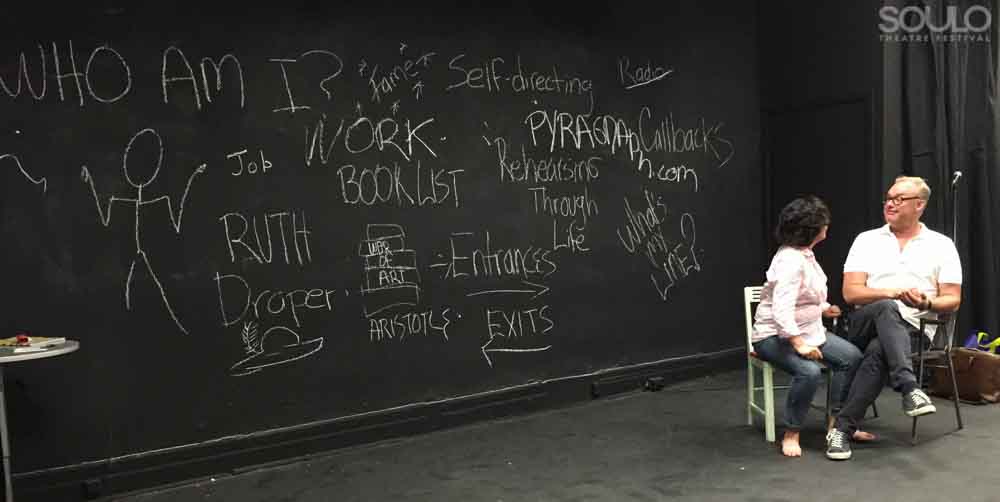 SOULO
THEATRE FESTIVAL
WHO AM I?
Fame
Self-directing
Radio
WORK.
Job
BOOK LIST
Callbacks
Rehearsing
Through
Life
What's
my
LINE?
RUTH
Draper
WAR
OF
ART
ARISTOTLE
Entrances
EXITS